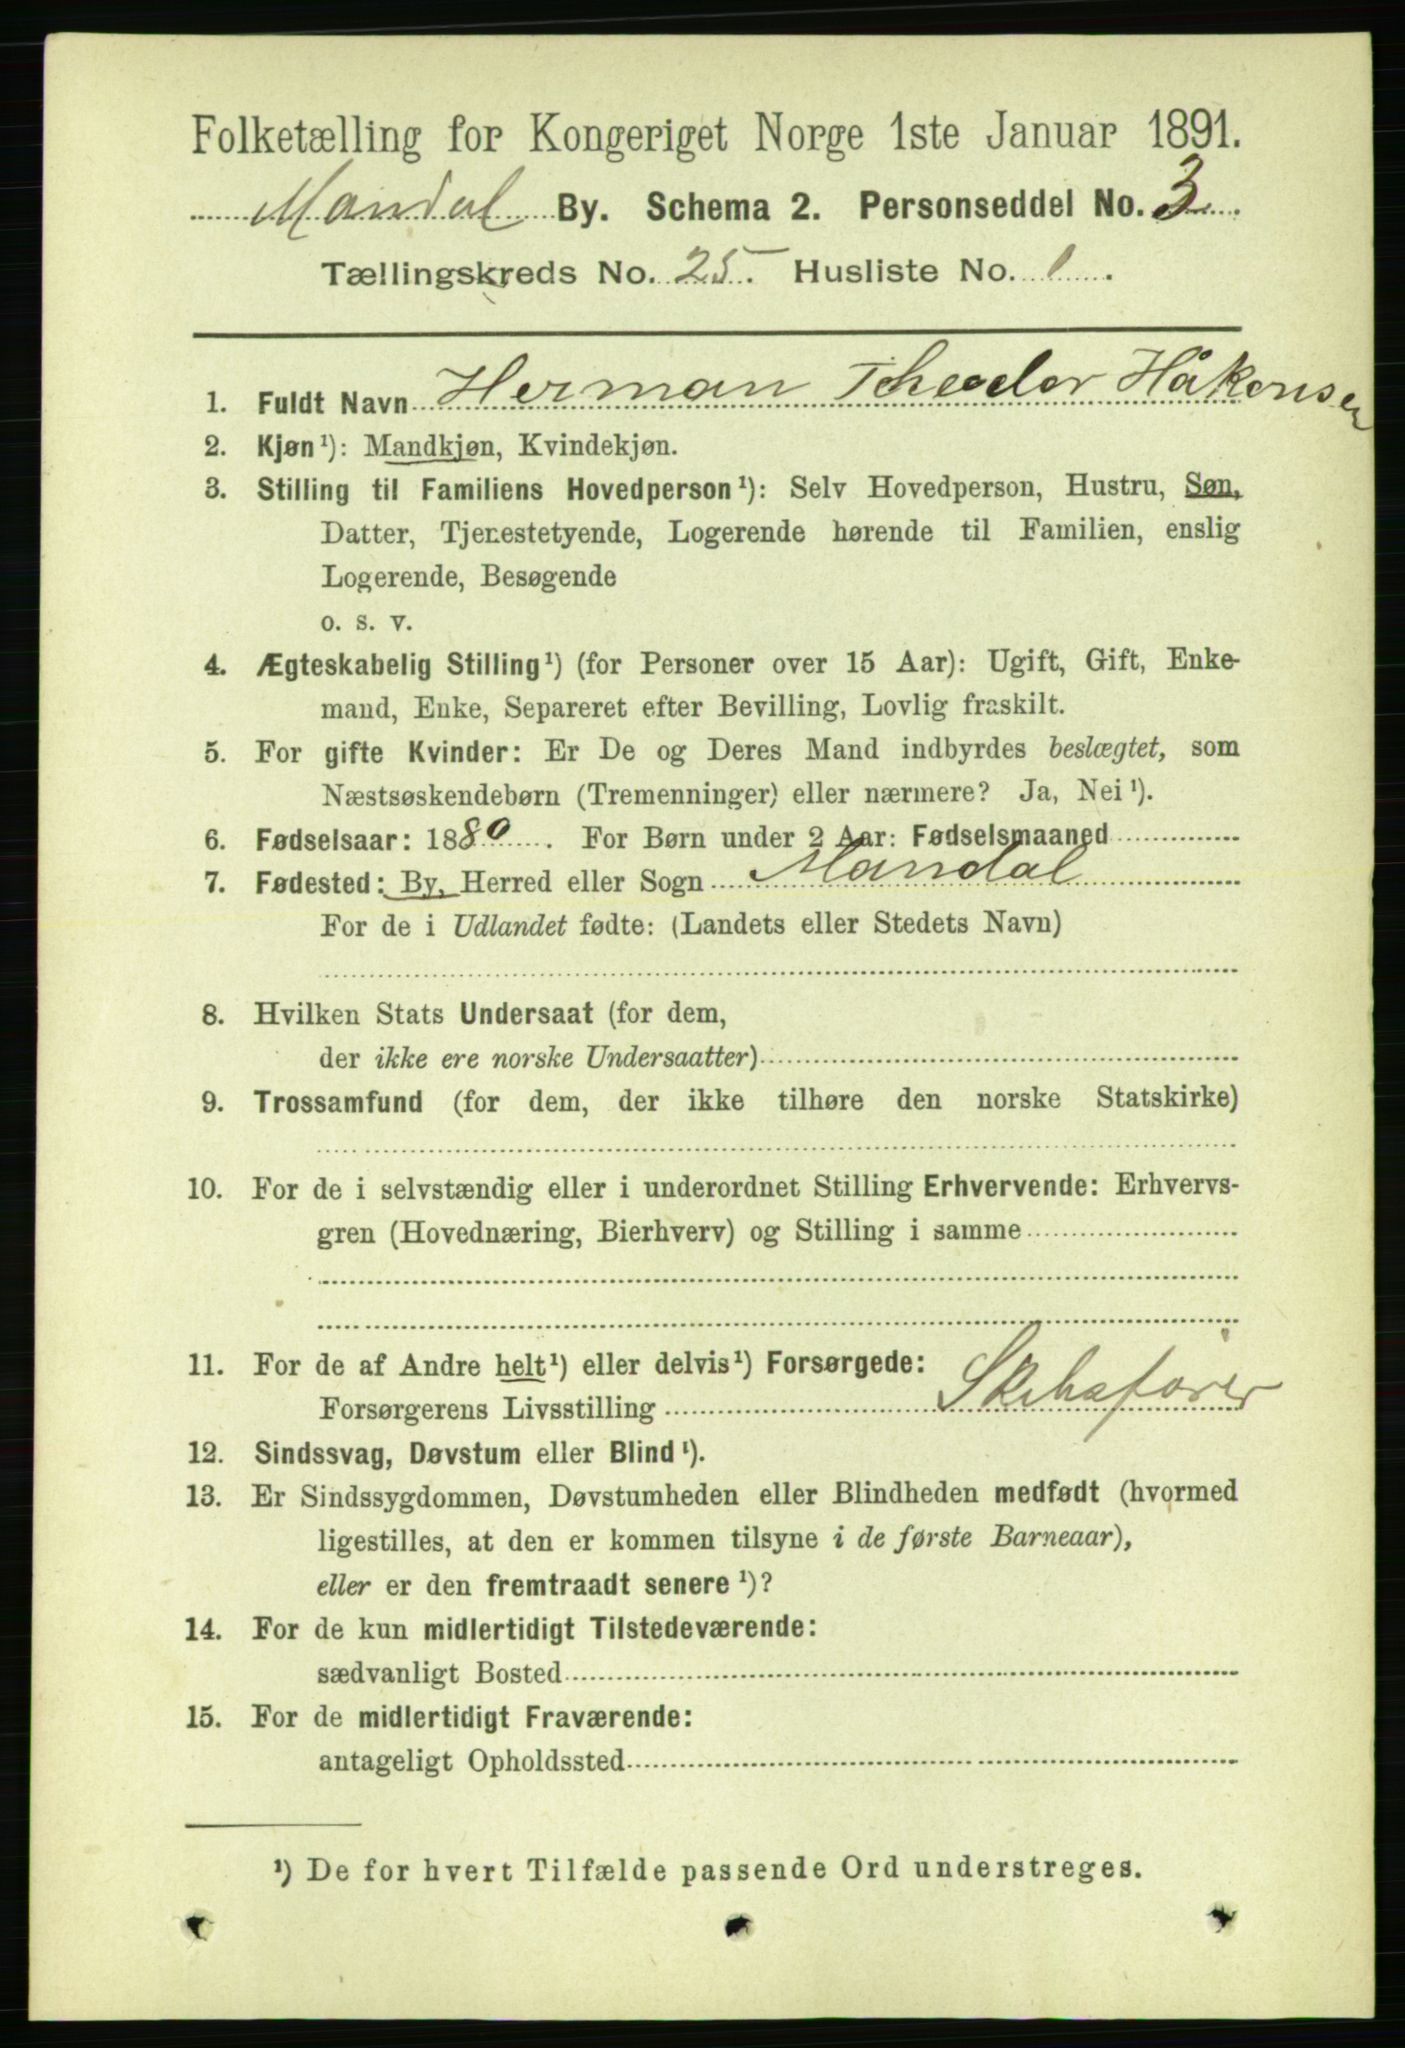 Folketælling for Kongeriget Norge 1ste Januar 1891.
Mandal By. Schema 2. Personseddel No. 3.
Tællingskreds No. 25. Husliste No. 1.
1. Fuldt Navn Herman Theodor Håkonsen
2. Kjøn¹): Mandkjøn, Kvindekjøn.
3. Stilling til Familiens Hovedperson¹): Selv Hovedperson, Hustru, Søn,
Datter, Tjenestetyende, Logerende hørende til Familien, enslig
Logerende, Besøgende
o. s. v.
4. Ægteskabelig Stilling¹) (for Personer over 15 Aar): Ugift, Gift, Enke-
mand, Enke, Separeret efter Bevilling, Lovlig fraskilt.
5. For gifte Kvinder: Er De og Deres Mand indbyrdes beslægtet, som
Næstsøskendebørn (Tremenninger) eller nærmere? Ja, Nei¹).
6. Fødselsaar: 1880. For Børn under 2 Aar: Fødselsmaaned
7. Fødested: By, Herred eller Sogn Mandal
For de i Udlandet fødte: (Landets eller Stedets Navn)
8. Hvilken Stats Undersaat (for dem,
der ikke ere norske Undersaatter)
9. Trossamfund (for dem, der ikke tilhøre den norske Statskirke)
10. For de i selvstændig eller i underordnet Stilling Erhvervende: Erhvervs-
gren (Hovednæring, Bierhverv) og Stilling i samme
11. For de af Andre helt¹) eller delvis¹) Forsørgede:
Forsørgerens Livsstilling Skibsfører
12. Sindssvag, Døvstum eller Blind¹).
13. Er Sindssygdommen, Døvstumheden eller Blindheden medfødt (hvormed
ligestilles, at den er kommen tilsyne i de første Barneaar),
eller er den fremtraadt senere¹)?
14. For de kun midlertidigt Tilstedeværende:
sædvanligt Bosted
15. For de midlertidigt Fraværende:
antageligt Opholdssted
¹) De for hvert Tilfælde passende Ord understreges.